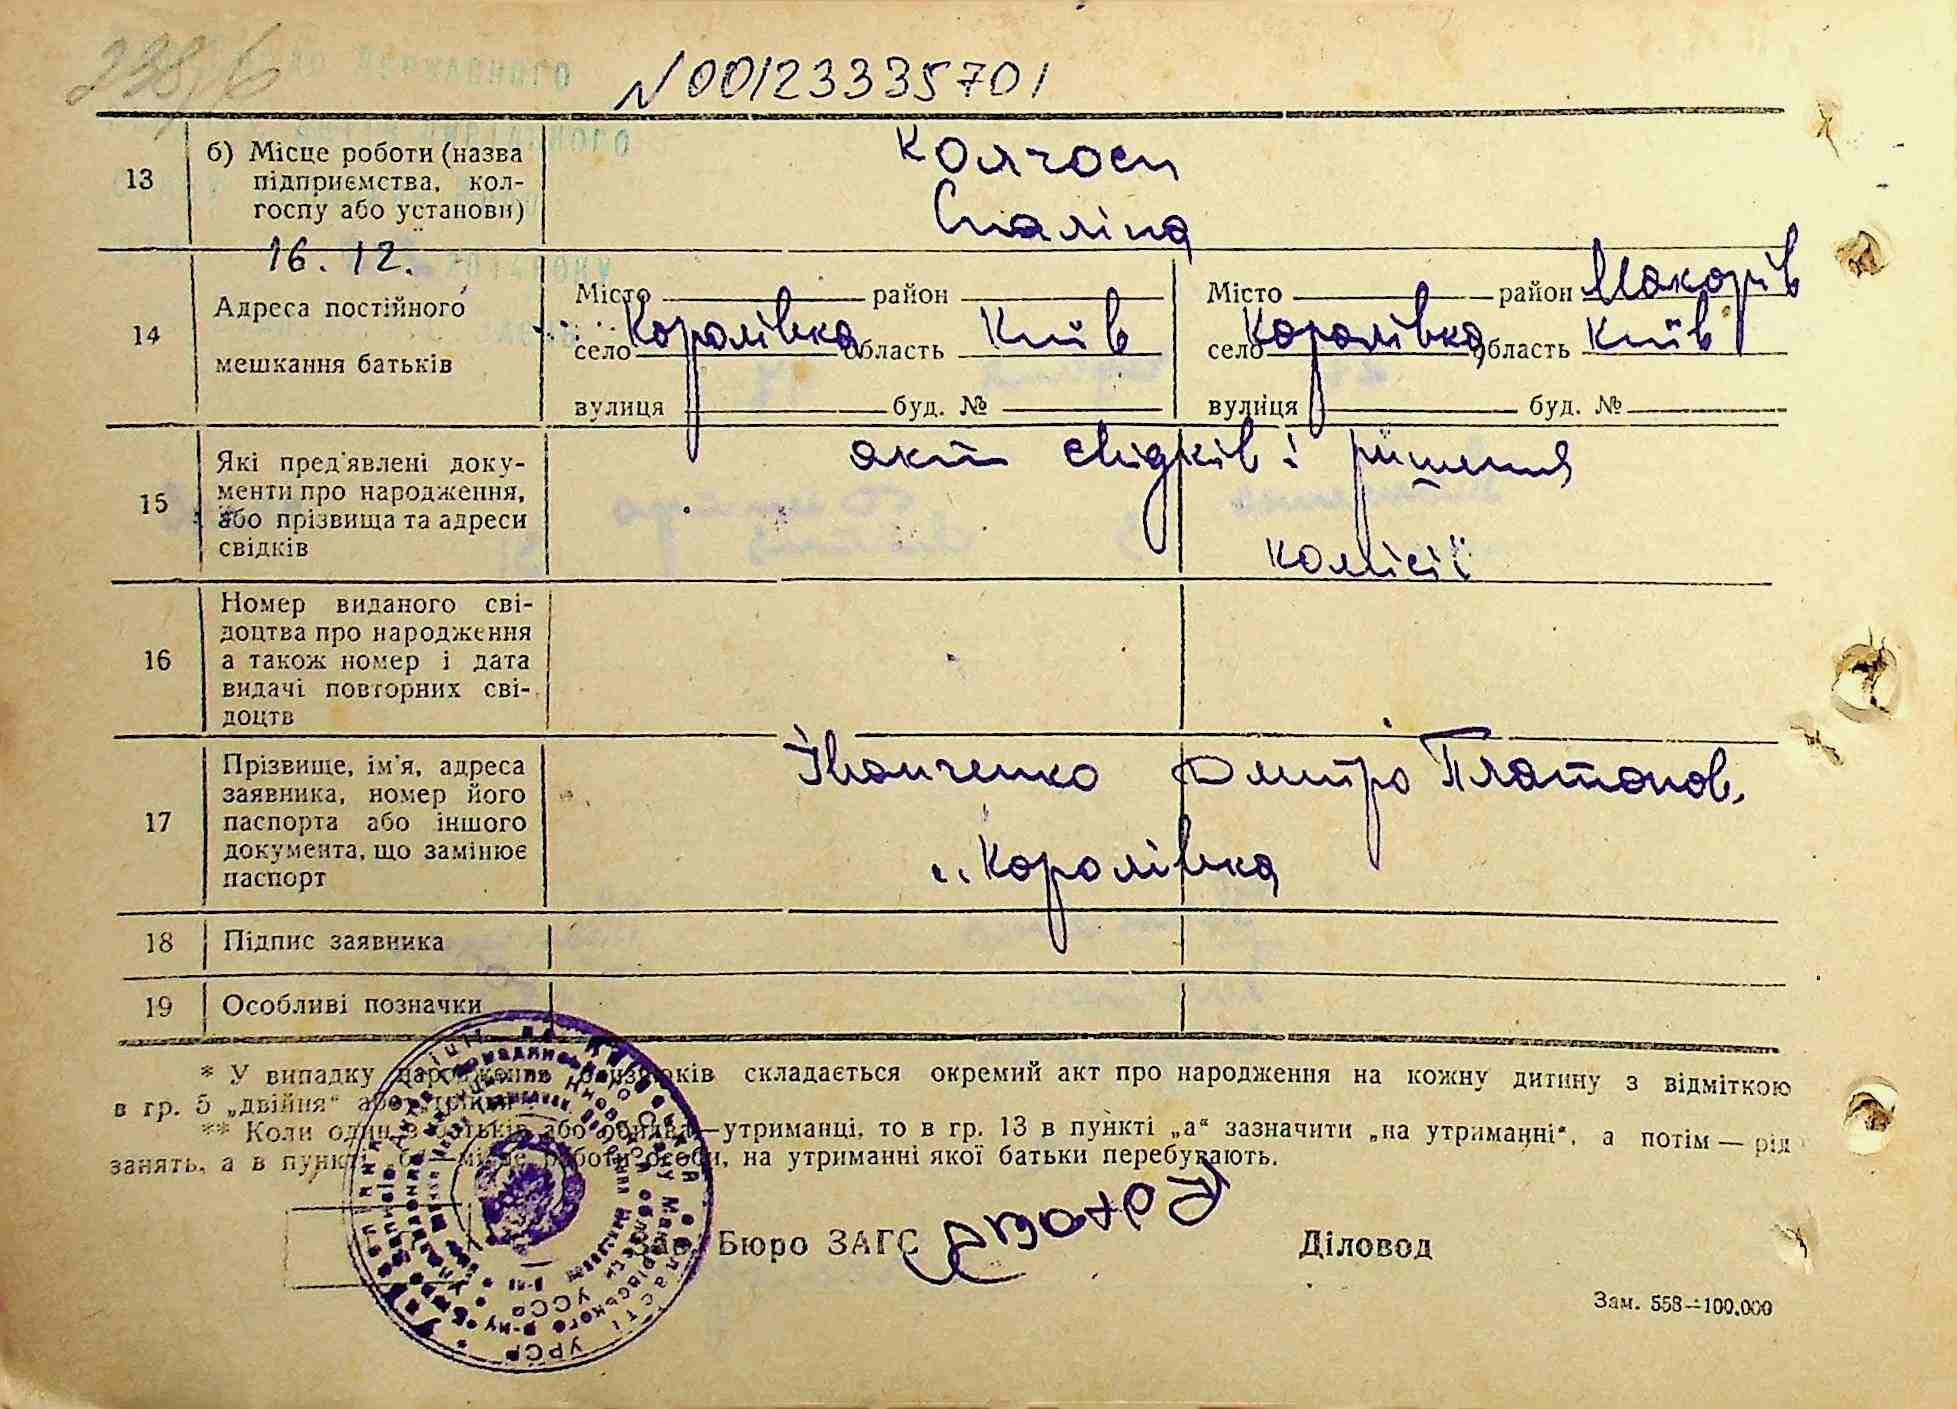 N00123335701
13
б) Місце роботи (назва
підприємства, кол-
госпу або установи)
Колгосп
Сталіна
16. 12.
14
Адреса постійного
мешкання батьків
Місто район
село Королівка область Київ
вулиця буд. №
Місто район Макарів
село Королівка область Київ
вулиця буд. №
15
Які пред'явлені доку-
менти про народження,
або прізвища та адреси
свідків
акт свідків і рішення
комісії
16
Номер виданого сві-
доцтва про народження
а також номер і дата
видачі повторних сві-
доцтв
17
Прізвище, ім'я, адреса
заявника, номер його
паспорта або іншого
документа, що замінює
паспорт
Іванченко Дмитро Платонов.
Королівка
18
Підпис заявника
19
Особливі позначки
* У випадку народження близнюків складається окремий акт про народження на кожну дитину з відміткою
в гр. 5 „двійня“ або
** Коли один з батьків або обидва—утриманці, то в гр. 13 в пункті „а“ зазначити „на утриманні“, а потім — рід
занять, а в пункті „б“—місце роботи особи, на утриманні якої батьки перебувають.
Зав. Бюро ЗАГС
Діловод
Зам. 558—100.000